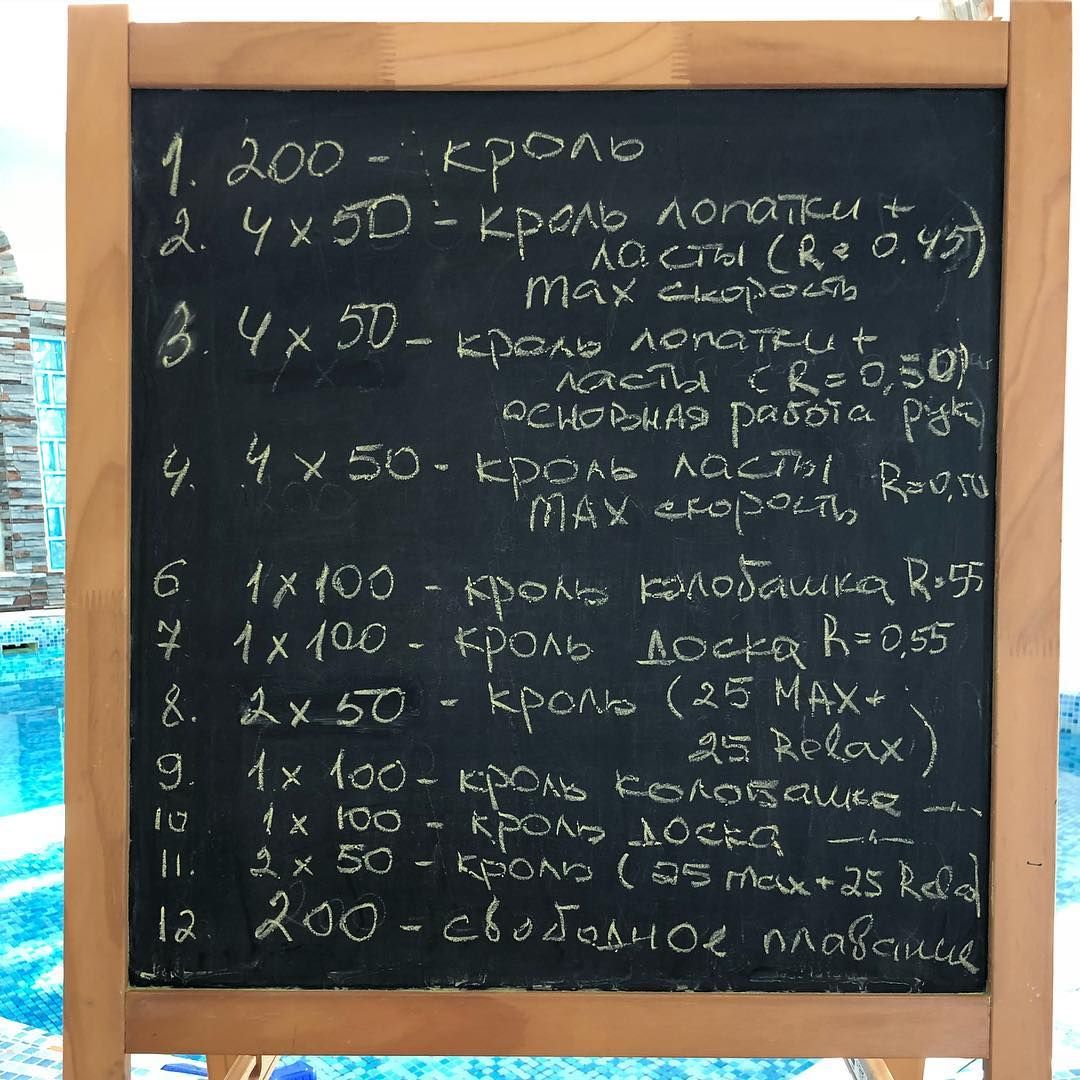 1. 200 - кроль
2. 4 x 50 - кроль лопатки +
ласты (R= 0.45)
max скорость
3. 4 x 50 - кроль лопатки +
ласты (R=0,50)
основная работа рук)
4. 4 x 50 - кроль ласты R=0,50
MAX скорость
6 1 x 100 - кроль колобашка R=55
7 1 x 100 - кроль доска R=0,55
8. 2 x 50 - кроль (25 MAX+
25 Relax)
9. 1 x 100 - кроль колобашка -"-
10 1 x 100 - кроль доска -"-
11. 2 x 50 - кроль (25 max + 25 Relax
12 200 - свободное плавание